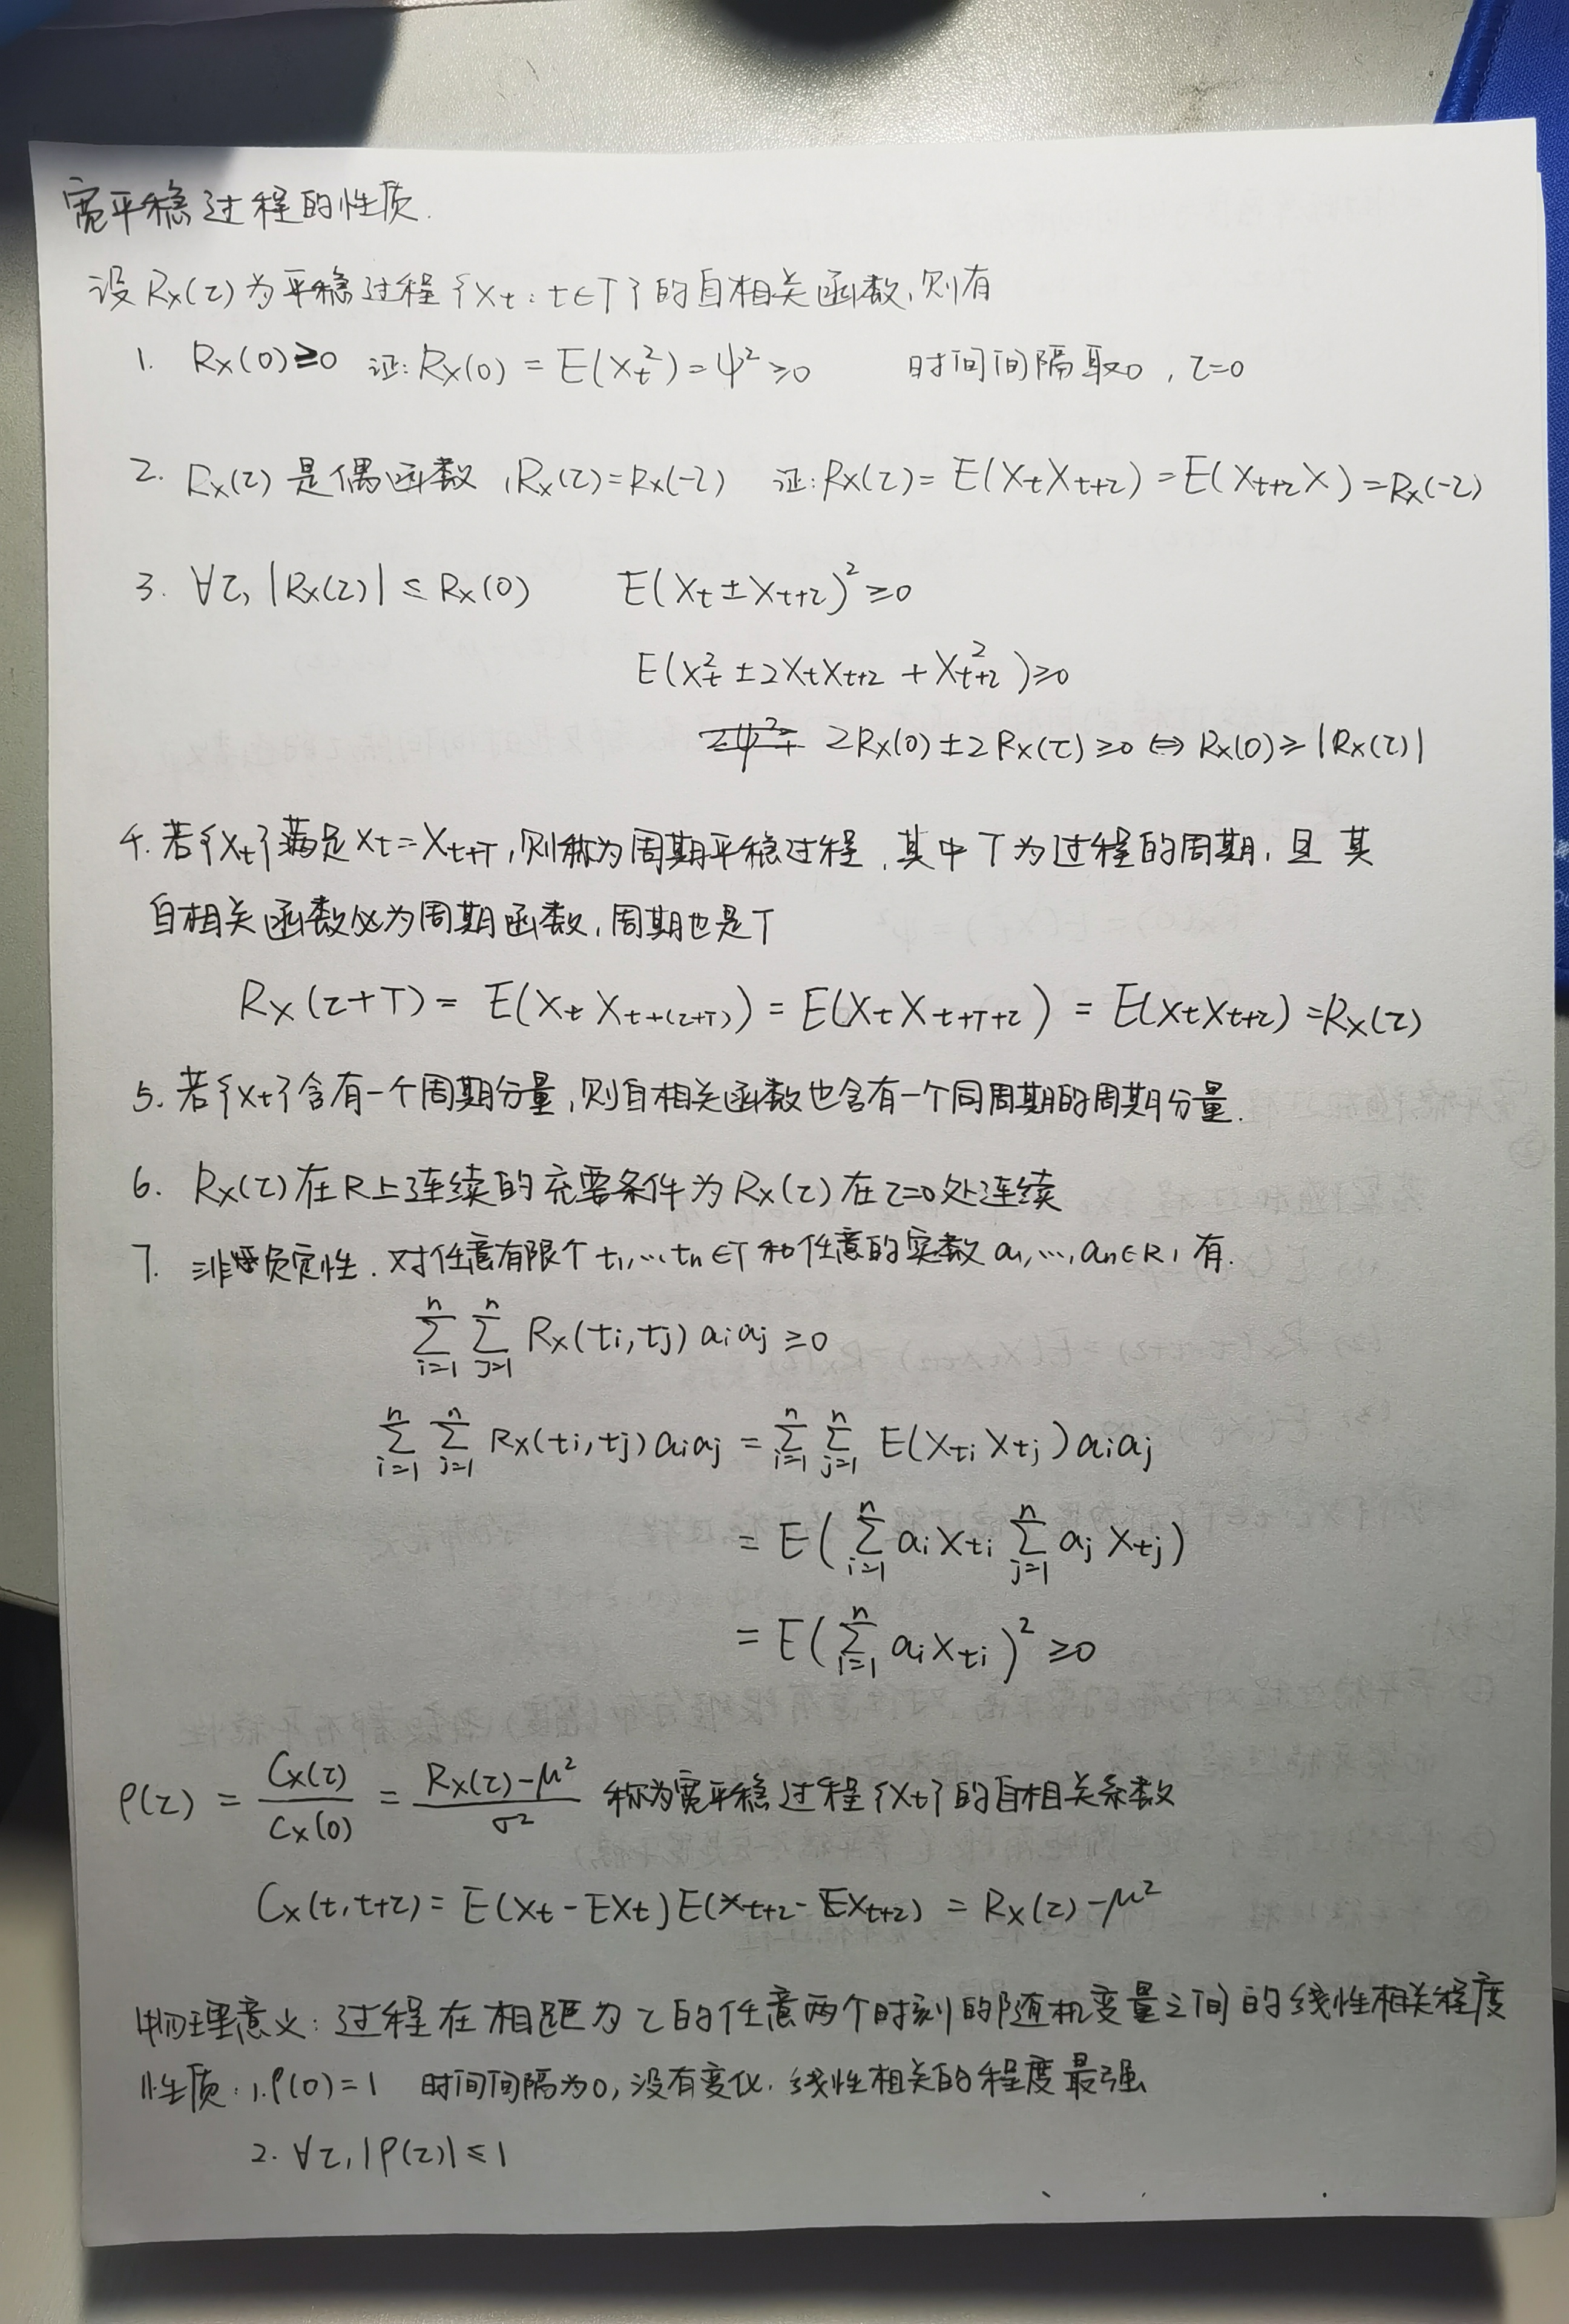 宽平稳过程的性质.
设 Rx(τ) 为平稳过程 {Xt: t∈T} 的自相关函数, 则有
1. Rx(0)≥0 证: Rx(0) = E(Xt²) = ψ² ≥0 时间间隔取0, τ=0
2. Rx(τ) 是偶函数, Rx(τ)=Rx(-τ) 证: Rx(τ) = E(XtXt+τ) = E(Xt+τX) = Rx(-τ)
3. ∀τ, |Rx(τ)| ≤ Rx(0) E(Xt±Xt+τ)² ≥0
E(Xt² ± 2XtXt+τ + Xt+τ²) ≥0
2Rx(0) ± 2Rx(τ) ≥0 ⇔ Rx(0) ≥ |Rx(τ)|
4. 若{Xt}满足 Xt = Xt+T, 则称为周期平稳过程, 其中 T 为过程的周期, 且其
自相关函数必为周期函数, 周期也是T
Rx(τ+T) = E(Xt Xt+(τ+T)) = E(Xt Xt+T+τ) = E(XtXt+τ) = Rx(τ)
5. 若{Xt}含有一个周期分量, 则自相关函数也含有一个同周期的周期分量.
6. Rx(τ) 在R上连续的充要条件为 Rx(τ) 在τ=0处连续
7. 非负定性. 对任意有限个 t1,…,tn∈T 和任意的实数 a1,…,an∈R, 有.
∑(i=1→n) ∑(j=1→n) Rx(ti,tj) aiaj ≥0
∑(i=1→n) ∑(j=1→n) Rx(ti,tj) aiaj = ∑(i=1→n) ∑(j=1→n) E(Xti Xtj) aiaj
= E(∑(i=1→n) aiXti ∑(j=1→n) aj Xtj)
= E(∑(i=1→n) aiXti)² ≥0
ρ(τ) = Cx(τ)/Cx(0) = (Rx(τ)-μ²)/σ² 称为宽平稳过程{Xt}的自相关系数
Cx(t,t+τ) = E(Xt - EXt)E(Xt+τ - EXt+τ) = Rx(τ) - μ²
物理意义: 过程在相距为τ的任意两个时刻的随机变量之间的线性相关程度
性质: 1. ρ(0)=1 时间间隔为0, 没有变化. 线性相关的程度最强
2. ∀τ, |ρ(τ)| ≤ 1